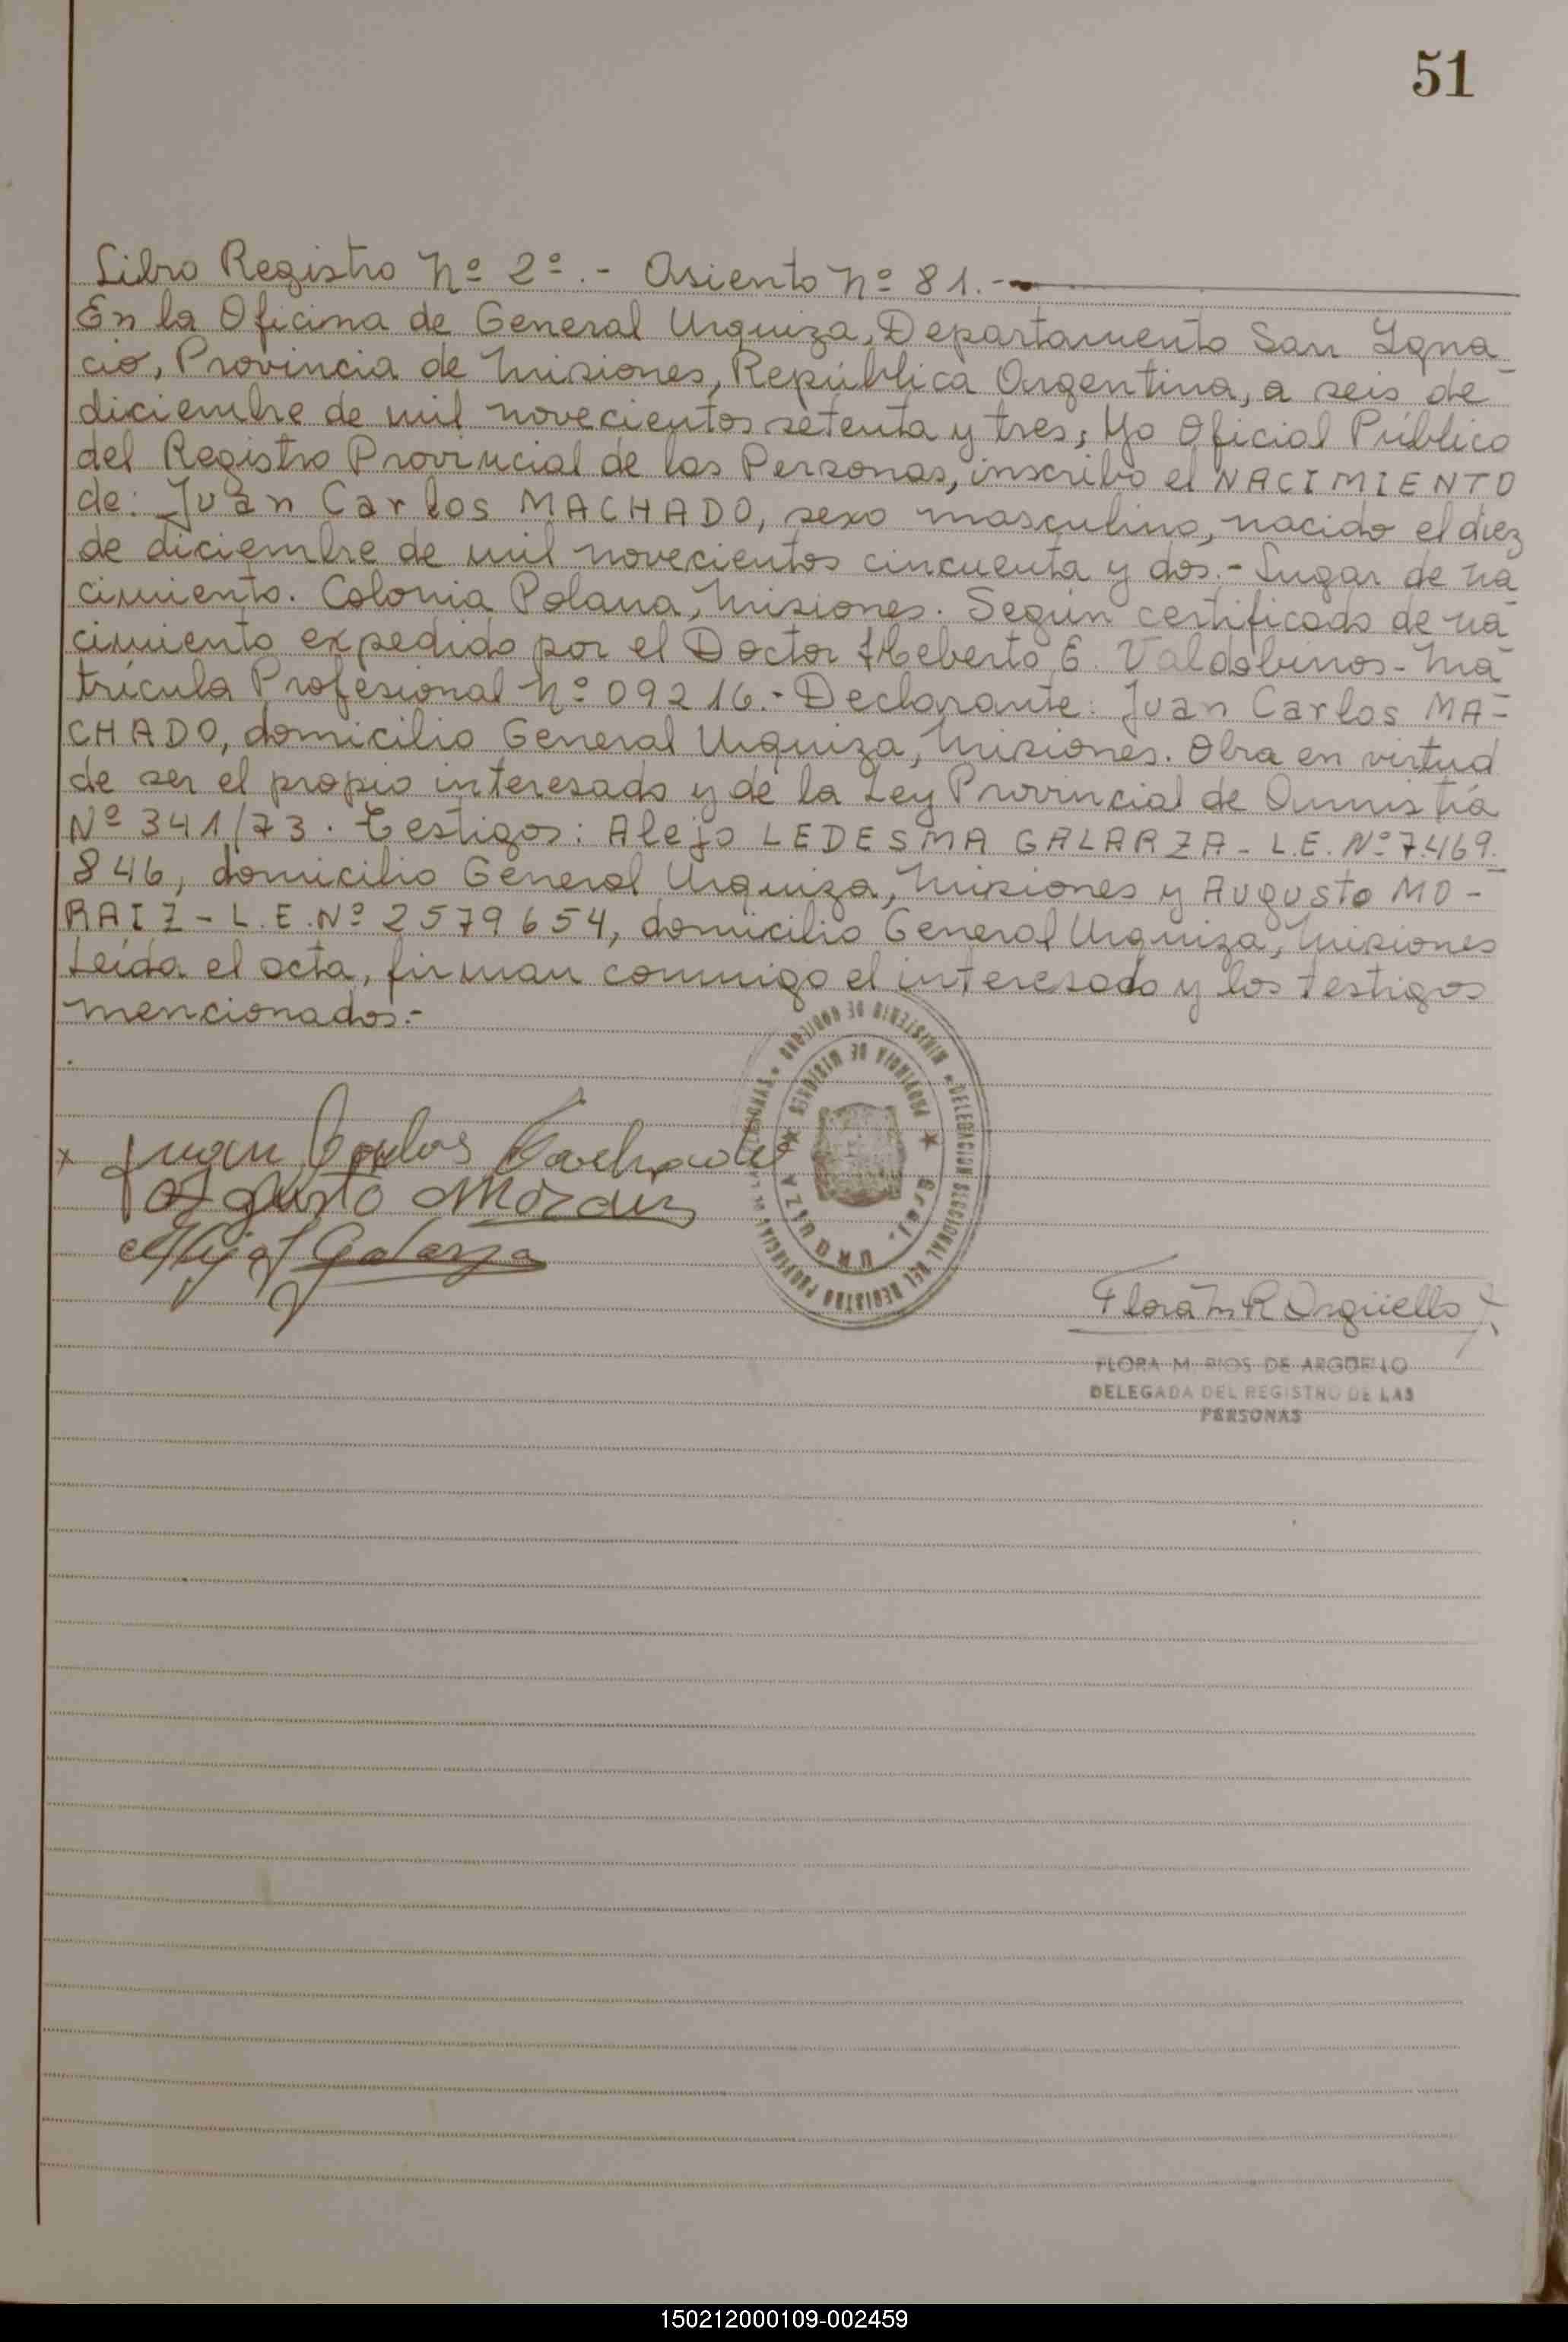 51
Libro Registro Nº 2º.- Asiento Nº 81.-
En la Oficina de General Urquiza, Departamento San Igna-
cio, Provincia de Misiones, República Argentina, a seis de
diciembre de mil novecientos setenta y tres; Yo Oficial Público
del Registro Provincial de las Personas, inscribo el NACIMIENTO
de: Juan Carlos MACHADO, sexo masculino, nacido el diez
de diciembre de mil novecientos cincuenta y dos.- Lugar de na-
cimiento. Colonia Polana, Misiones. Según certificado de na-
cimiento expedido por el Doctor Heberto E. Valdobinos- Ma-
trícula Profesional Nº 09216.- Declarante: Juan Carlos MA-
CHADO, domicilio General Urquiza, Misiones. Obra en virtud
de ser el propio interesado y de la Ley Provincial de Amnistía
Nº 341/73. Testigos: Alejo LEDESMA GALARZA- L.E. Nº 7.469.
846, domicilio General Urquiza, Misiones y Augusto MO-
RAIZ- L.E. Nº 2579654, domicilio General Urquiza, Misiones
Leída el acta, firman conmigo el interesado y los testigos
mencionados.-
MINISTERIO DE GOBIERNO
DELEGACION SECCIONAL DEL REGISTRO PROVINCIAL DE LAS PERSONAS
PROVINCIA DE MISIONES
Gral. URQUIZA
x Juan Carlos Machado
Agusto Moraiz
Galarza
Flora M R Argüello
FLORA M. RIOS DE ARGÜELLO
DELEGADA DEL REGISTRO DE LAS
PERSONAS
150212000109-002459